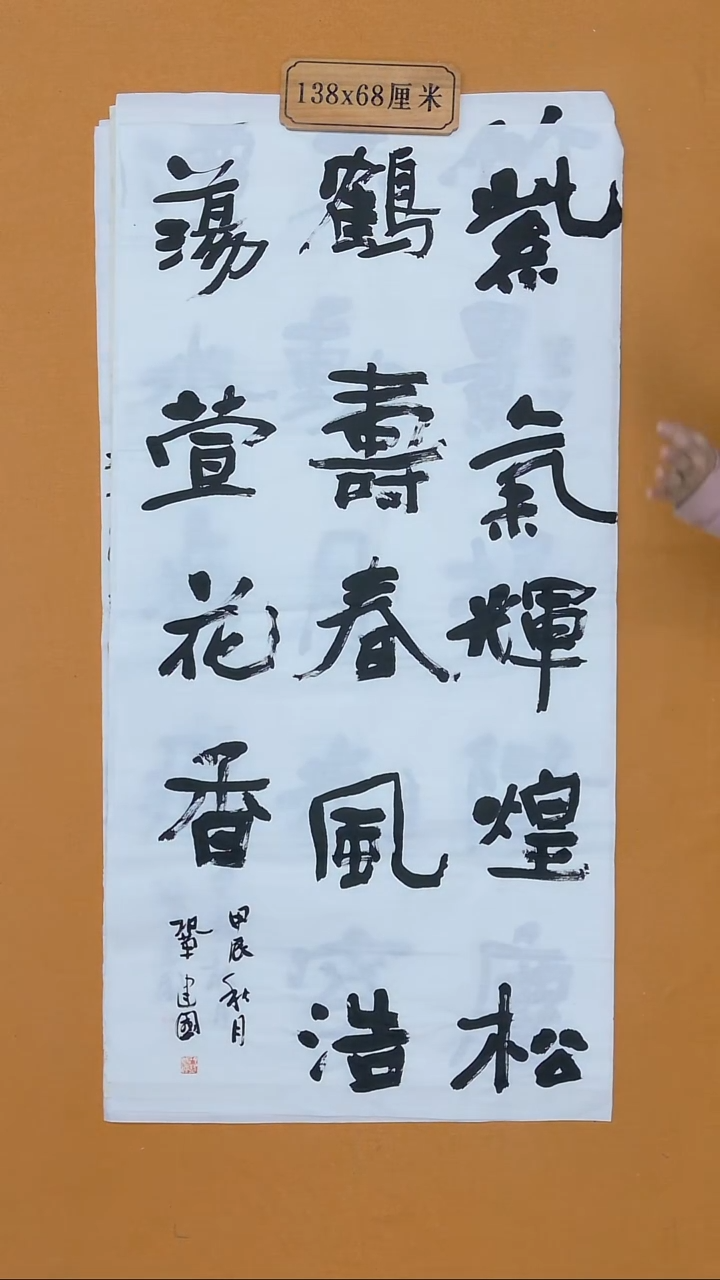 138x68厘米
紫氣輝煌松
鶴壽春風浩
蕩萱花香
甲辰秋月
鞏建國